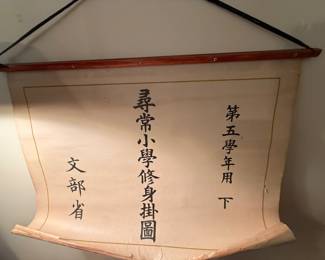 第五學年用 下
尋常小學修身掛圖
文部省